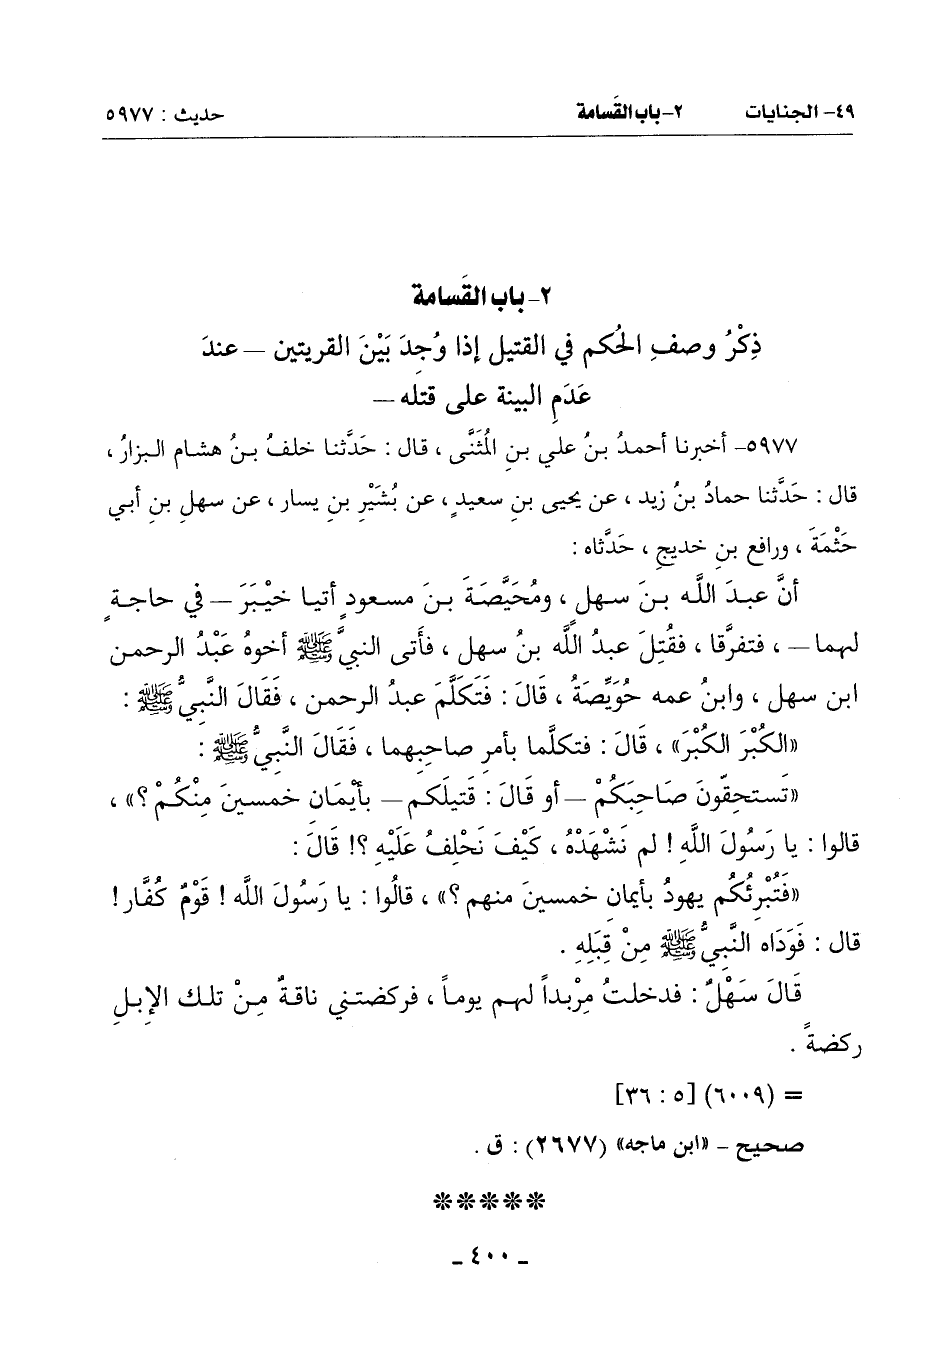 ٤٩- الجنايات ٢- باب القَسامة حديث : ٥٩٧٧
٢- باب القَسامة
ذِكْرُ وصفِ الحُكم في القتيل إذا وُجِدَ بَيْنَ القريتين – عندَ
عَدَمِ البينة على قتله –
٥٩٧٧- أخبرنا أحمدُ بنُ علي بنِ المُثنَّى ، قال : حَدَّثنا خلفُ بـنُ هشام البزارُ ،
قال : حَدَّثنا حمادُ بنُ زيد ، عن يحيى بنِ سعيدٍ، عن بُشَيْرِ بنِ يسار ، عن سهلِ بنِ أبي
حَثْمَةَ ، ورافع بنِ خديجٍ ، حَدَّثاه :
أنَّ عبـدَ اللَّه بـنَ سـهلٍ ، ومُحَيَّصَةَ بـنَ مسـعودٍ أتيـا خيْـبَرَ – في حاجـةٍ
لهما – ، فتفرَّقا ، فقُتِلَ عبدُ اللَّه بنُ سهل ، فأتى النبيَّ ﷺ أخوهُ عَبْدُ الرحمن
ابن سهل ، وابنُ عمه حُوَيِّصَةُ ، قَالَ : فَتَكَلَّمَ عبدُ الرحمن ، فَقَالَ النَّبِيُّ ﷺ :
«الكُبْرَ الكُبْرَ» ، قَالَ : فتكلَّما بأمرِ صاحِبِهما ، فَقَالَ النَّبِيُّ ﷺ :
«تَستحِقّونَ صَاحِبَكُمْ – أو قَالَ : قَتيلَكم – بأيْمَانِ خمسينَ مِنْكُمْ ؟» ،
قالوا : يا رَسُولَ اللَّهِ ! لم نَشْهَدْهُ ، كَيْفَ نَحْلِفُ عَلَيْهِ ؟! قَالَ :
«فَتُبْرِئُكُم يهودُ بأيمَانِ خمسينَ منهم ؟» ، قَالُوا : يا رَسُولَ اللَّه ! قَوْمٌ كُفَّار !
قال : فَوَدَاه النَّبِيُّ ﷺ مِنْ قِبَلِهِ .
قَالَ سَهْلٌ : فدخلتُ مِرْبداً لهـم يومـاً ، فركضتـني ناقـةٌ مِـنْ تلـك الإبـلِ
ركضةً .
= (٦٠٠٩) [٥ : ٣٦]
صحيح – «ابن ماجه» (٢٦٧٧) : ق .
*****
ـ ٤٠٠ ـ